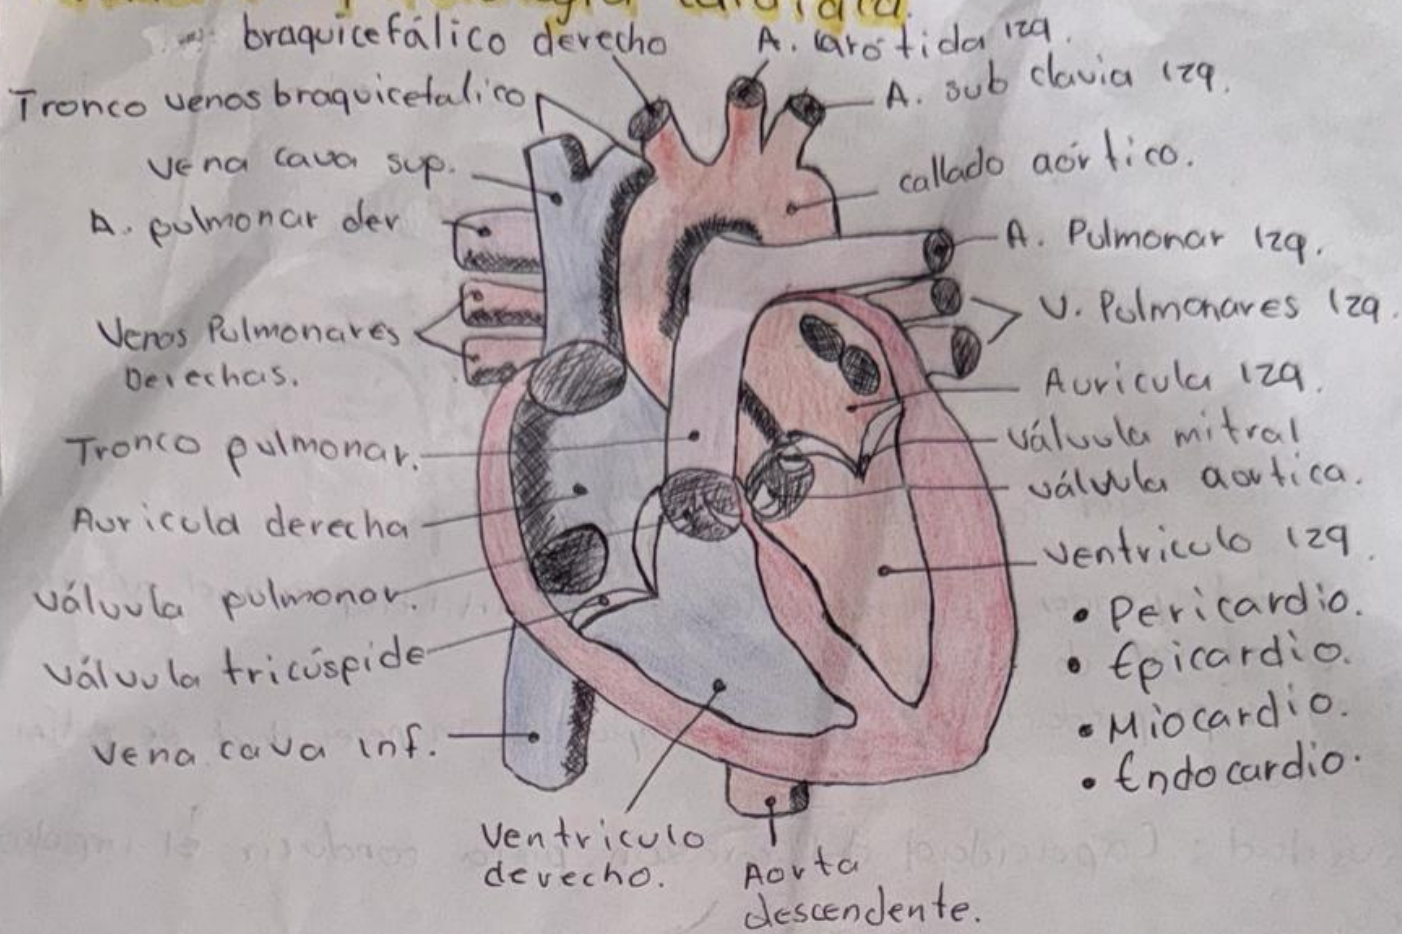 braquicefálico derecho
A. carótida izq.
Tronco venos braquicefalico
A. sub clavia izq.
vena cava sup.
callado aórtico.
A. pulmonar der
A. Pulmonar izq.
Venas Pulmonares
Derechas.
V. Pulmonares izq.
Auricula izq.
Tronco pulmonar.
válvula mitral
válvula aortica.
Auricula derecha
ventriculo izq.
válvula pulmonar.
• Pericardio.
válvula tricúspide
• Epicardio.
vena cava inf.
• Miocardio.
• Endocardio.
Ventriculo
derecho.
Aorta
descendente.